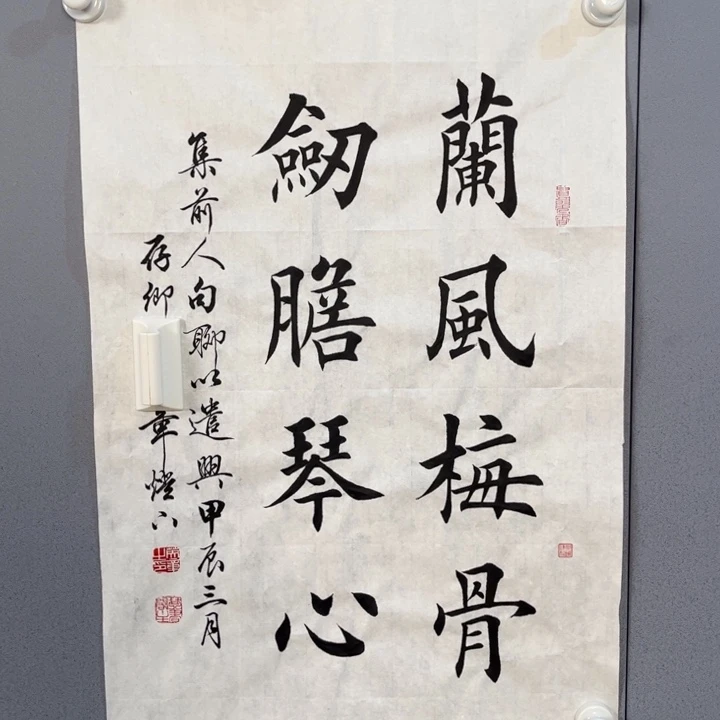 蘭風梅骨
劒膽琴心
集前人句聊以遣興甲辰三月
存卿
草燈下